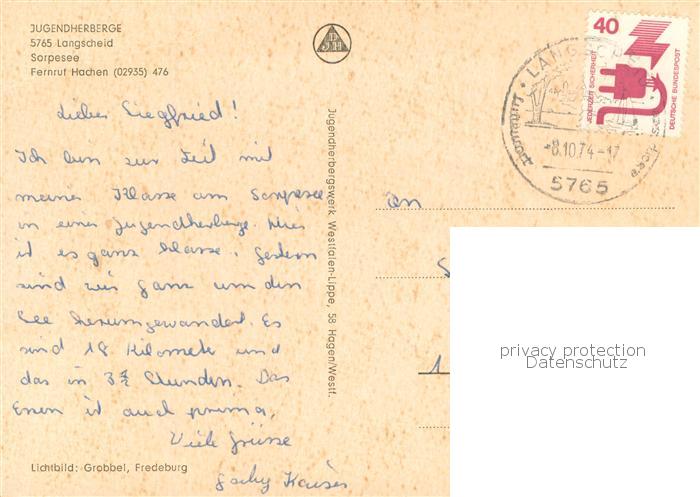 JUGENDHERBERGE
5765 Langscheid
Sorpesee
Fernruf Hachen (02935) 476
DJH
40
JEDERZEIT SICHERHEIT
DEUTSCHE BUNDESPOST
LANGSCHEID
Luftkurort
a. Sorpesee
-8.10.74-17
5765
Lieber Siegfried!
Ich bin zur Zeit mit
meiner Klasse am Sorpesee
in einer Jugendherberge. Hier
ist es ganz klasse. Gestern
sind wir ganz um den
See herumgewandert. Es
sind 18 Kilometer und
das in 3 Stunden. Das
Essen ist auch prima.
Viele Grüsse
Kaiser
Jugendherbergswerk Westfalen-Lippe, 58 Hagen/Westf.
An
S
1
privacy protection
Datenschutz
Lichtbild: Grobbel, Fredeburg